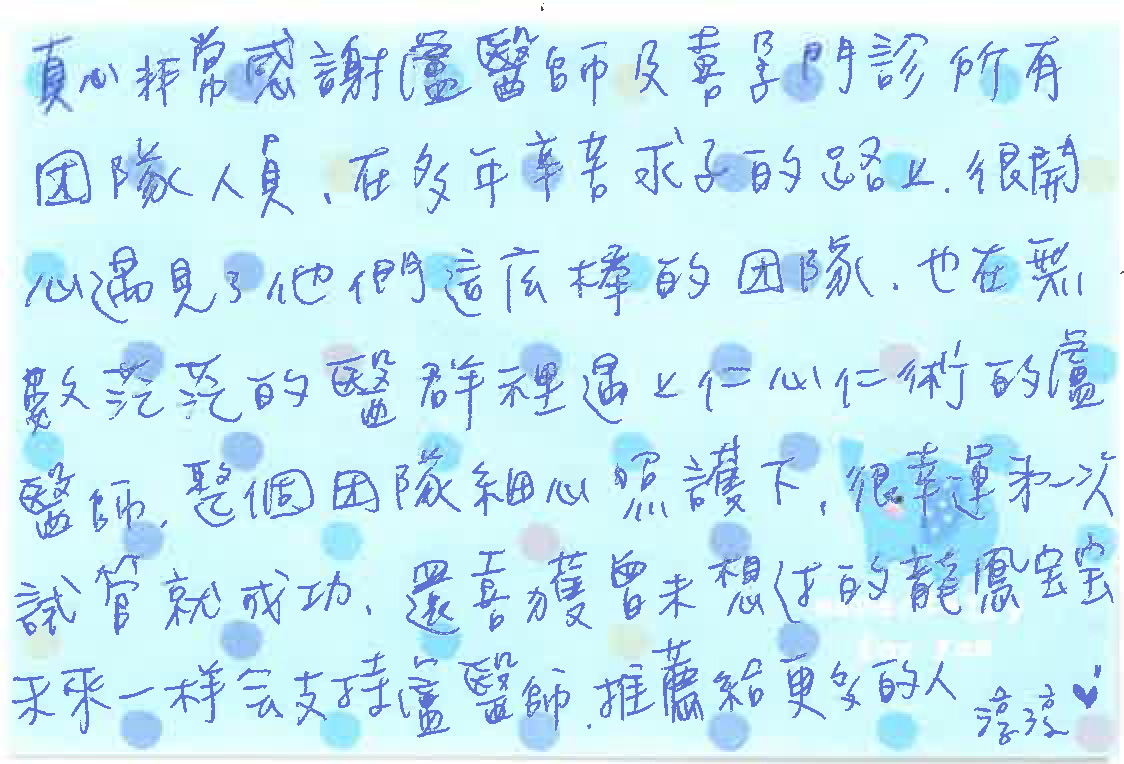 真心非常感謝瀘醫師及喜孕門診所有
团隊人員、在多年辛苦求子的路上、很開
心遇見了他們這庅棒的团隊、也在無
數茫茫的醫群裡遇上仁心仁術的瀘
醫師、整個团隊細心照護下、很幸運第一次
試管就成功、還喜獲曾未想过的龍鳳宝宝
未來一样会支持瀘醫師、推薦給更多的人 淳淳
for you